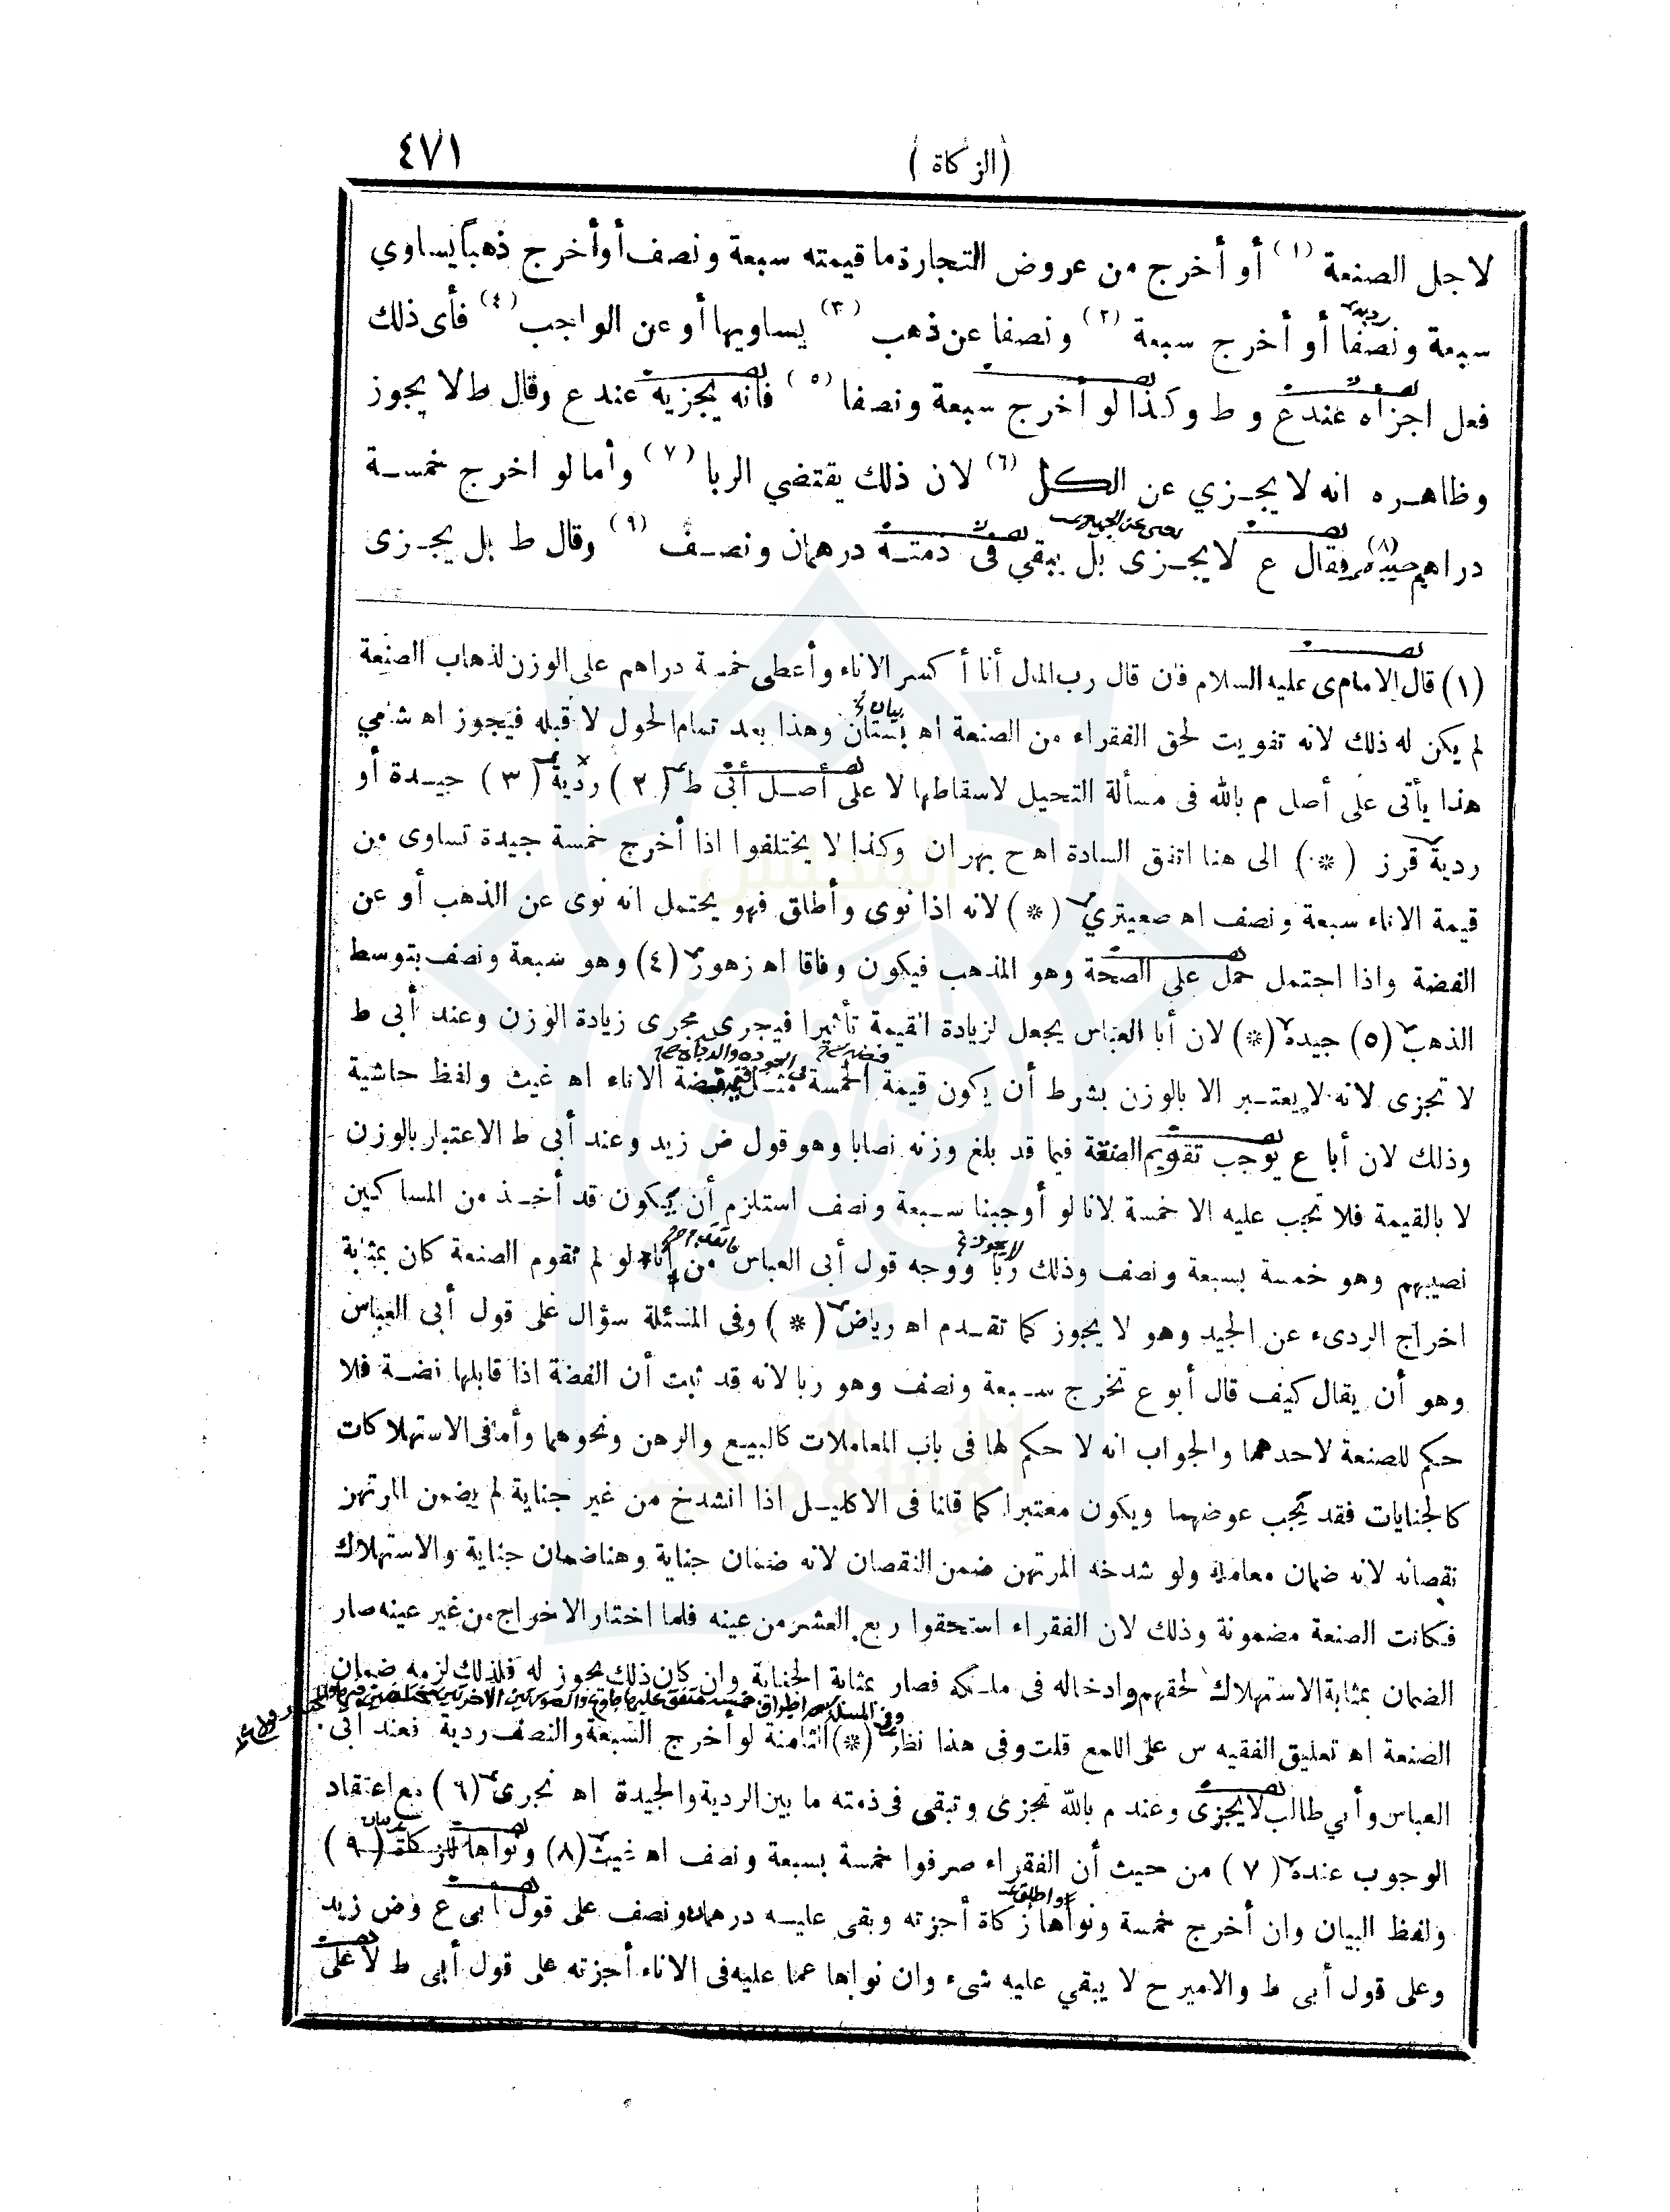 (الزكاة)
٤٧١
لاجل الصنعة (١) أو أخرج من عروض التجارة ما قيمته سبعة ونصف أو أخرج ذهباً يساوي
سبعة ونصفا أو أخرج سبعة (٢) ونصفا عن ذهب (٣) يساويها أو عن الواجب (٤) فأى ذلك
فعل اجزاه عند ع و ط وكذا لو أخرج سبعة ونصفا (٥) فانه يجزيه عند ع وقال ط لا يجوز
وظاهره انه لا يجزي عن الكل (٦) لان ذلك يقتضي الربا (٧) وأما لو اخرج خمسة
دراهم (٨) فقال ع لا يجزى بل يبقي فى ذمته درهمان ونصف (٩) وقال ط بل يجزى
(١) قال الامام ى عليه السلام فان قال رب المال أنا أكسر الاناء وأعطى خمسة دراهم على الوزن لذهاب الصنعة
لم يكن له ذلك لانه تفويت لحق الفقراء من الصنعة اه بستان وهذا بعد تمام الحول لا قبله فيجوز اه شامي
هذا يأتى على أصل م بالله فى مسألة التحيل لاسقاطها لا على أصل أبى ط (٢) ردية (٣) جيدة أو
ردية قرز (*) الى هنا اتفق السادة اه ح بهران وكذا لا يختلفوا اذا أخرج خمسة جيدة تساوى من
قيمة الاناء سبعة ونصف اه صعيتري (*) لانه اذا نوى وأطلق فهو يحتمل انه نوى عن الذهب أو عن
الفضة واذا احتمل حمل على الصحة وهو المذهب فيكون وفاقا اه زهور (٤) وهو سبعة ونصف بتوسط
الذهب (٥) جيده (*) لان أبا العباس يجعل لزيادة القيمة تأثيرا فيجرى مجرى زيادة الوزن وعند أبى ط
لا تجزى لانه لا يعتبر الا بالوزن بشرط أن يكون قيمة الخمسة مثل فضة الاناء اه غيث ولفظ حاشية
وذلك لان أبا ع يوجب تقويم الصنعة فيما قد بلغ وزنه نصابا وهو قول ض زيد وعند أبى ط الاعتبار بالوزن
لا بالقيمة فلا تجب عليه الا خمسة لانا لو أوجبنا سبعة ونصف استلزم أن يكون قد أخذ من المساكين
نصيبهم وهو خمسة بسبعة ونصف وذلك ربا ووجه قول أبى العباس من لو لم تقوم الصنعة كان بمثابة
اخراج الردىء عن الجيد وهو لا يجوز كما تقدم اه رياض (*) وفى المسئلة سؤال على قول أبى العباس
وهو أن يقال كيف قال أبو ع تخرج سبعة ونصف وهو ربا لانه قد ثبت أن الفضة اذا قابلها فضة فلا
حكم للصنعة لاحدهما والجواب انه لا حكم لها فى باب المعاملات كالبيع والرهن ونحوهما وأما فى الاستهلاكات
كالجنايات فقد يجب عوضهما ويكون معتبرا كما قلنا فى الاكليل اذا انشدخ من غير جناية لم يضمن المرتهن
نقصانه لانه ضمان معاملة ولو شدخه المرتهن ضمن النقصان لانه ضمان جناية وهنا ضمان جناية والاستهلاك
فكانت الصنعة مضمونة وذلك لان الفقراء استحقوا ربع العشر من عينه فلما اختار الاخراج من غير عينه صار
الضمان بمثابة الاستهلاك لحقهم وادخاله فى ملكه فصار بمثابة الجناية وان كان ذلك يجوز له فلذلك لزمه ضمان
الصنعة اه تعليق الفقيه س على اللمع قلت وفى هذا نظر (*) الثامنة لو أخرج السبعة والنصف ردية فعند أبى
العباس وأبي طالب لا يجزى وعند م بالله تجزى وتبقى فى ذمته ما بين الردية والجيدة اه نجرى (٦) مع اعتقاد
الوجوب عنده (٧) من حيث أن الفقراء صرفوا خمسة بسبعة ونصف اه غيث (٨) ونواها للزكاة (٩)
ولفظ البيان وان أخرج خمسة ونواها زكاة أجزته وبقى عليه درهمان ونصف على قول أبى ع وض زيد
وعلى قول أبى ط والامير ح لا يبقي عليه شىء وان نواها عما عليه فى الاناء أجزته على قول أبى ط لا على